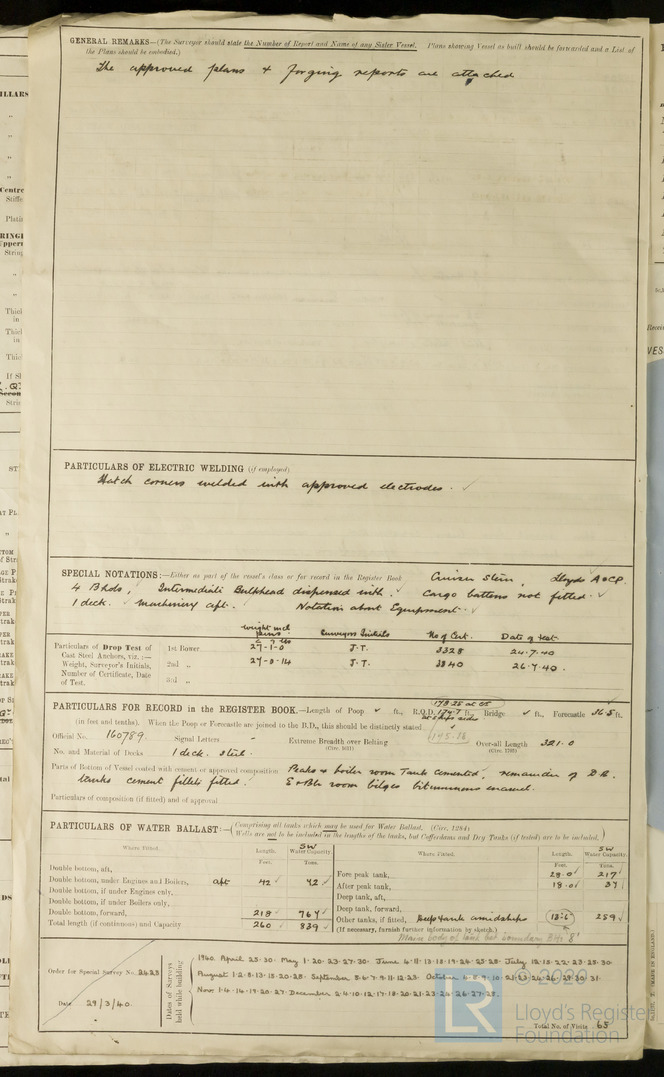 GENERAL REMARKS—(The Surveyor should state the Number of Report and Name of any Sister Vessel. Plans showing Vessel as built should be forwarded and a List of
the Plans should be embodied.)
The approved plans & forging reports are attached
PARTICULARS OF ELECTRIC WELDING (if employed)
Hatch corners welded with approved electrodes.
SPECIAL NOTATIONS:—Either as part of the vessel's class or for record in the Register Book Cruiser Stern, Lloyds A & CP.
4 Bhds, Intermediate Bulkhead dispensed with. Cargo battens not fitted.
1 deck. Machinery aft. Notation about Equipment.
Weight incl pins Surveyors Initials No of Cert. Date of test.
Particulars of Drop Test of 1st Bower 27-1-0 J.T. 3328 24.7.40
Cast Steel Anchors, viz.:—
Weight, Surveyor's Initials, 2nd „ 27-0-14 J.T. 3340 26.7.40.
Number of Certificate, Date
of Test. 3rd „
PARTICULARS FOR RECORD in the REGISTER BOOK.—Length of Poop ft., R.Q.D. 174.7 ft., Bridge ft., Forecastle 36.5 ft.
(in feet and tenths). When the Poop or Forecastle are joined to the B.D., this should be distinctly stated.
Official No. 160789. Signal Letters - Extreme Breadth over Belting Over-all Length 321.0
(Circ. 1611) (Circ. 1703)
No. and Material of Decks 1 deck. steel.
Parts of Bottom of Vessel coated with cement or approved composition Peaks & boiler room Tank cemented, remainder of D.B.
tanks cement fillets fitted. E & Blr room bilges bituminous enamel.
Particulars of composition (if fitted) and of approval
PARTICULARS OF WATER BALLAST:—(Comprising all tanks which may be used for Water Ballast. (Circ. 1284)
Wells are not to be included in the lengths of the tanks, but Cofferdams and Dry Tanks (if tested) are to be included.)
Where Fitted. Length. SW Water Capacity. Where Fitted. Length. SW Water Capacity.
Feet. Tons. Feet. Tons.
Double bottom, aft, Fore peak tank, 28.0 217
Double bottom, under Engines and Boilers, aft 42 42 After peak tank, 18.0 37
Double bottom, if under Engines only, Deep tank, aft,
Double bottom, if under Boilers only, Deep tank, forward,
Double bottom, forward, 218 764 Other tanks, if fitted, Deep tank amidships 13'6" 259
Total length (if continuous) and Capacity 260 839 (If necessary, furnish further information by sketch.)
Order for Special Survey No. 2425
Date 29/3/40.
Dates of Surveys held while building
1940 April 25.30. May 1.20.23.27.30. June 6.11.13.18.19.24.25.28. July 12.18.22.23.25.30.
August 1.2.8.13.15.20.28. September 5.6.7.9.11.12.23. October 4.8.9.10.21.23.24.26.29.30.31.
Nov. 1.6.14.19.20.27. December 2.4.10.12.17.18.20.21.23.24.26.27.28.
Total No. of Visits 65
© 2020
LR
Lloyd's Register
Foundation